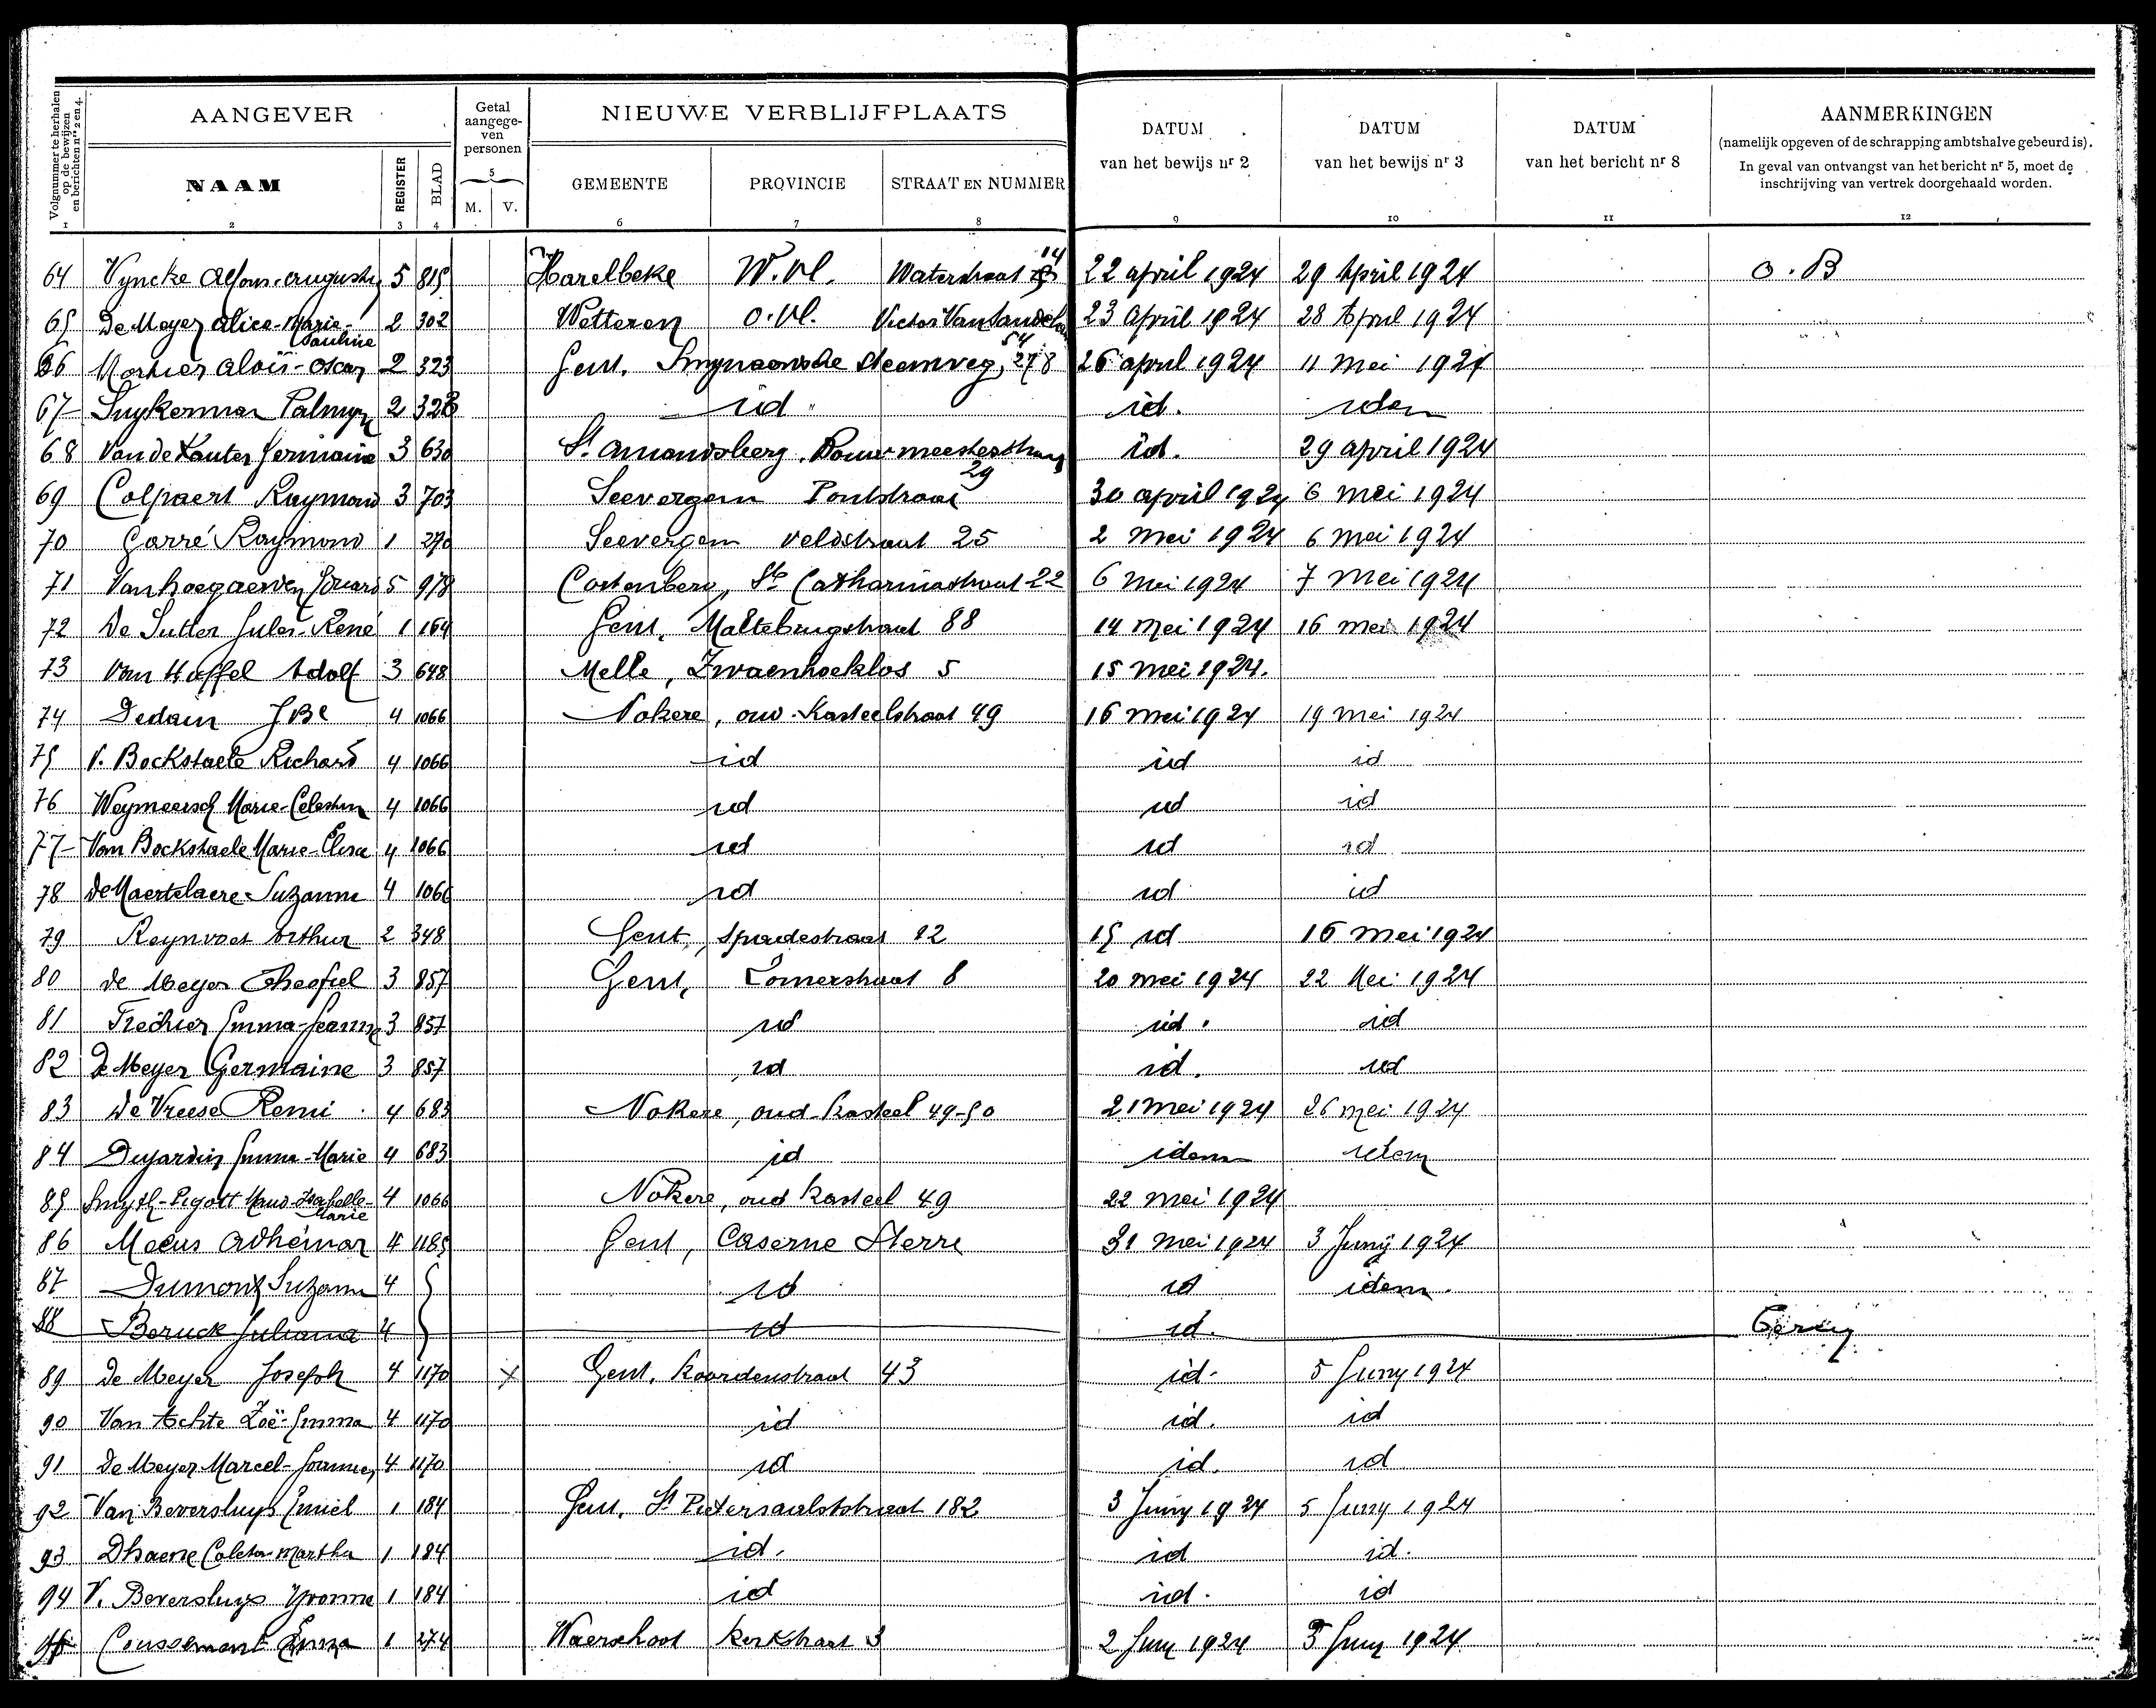 Volgnummer te herhalen op de bewijzen en berichten nrs 2 en 4.
AANGEVER
Getal aangegeven personen
NIEUWE VERBLIJFPLAATS
DATUM van het bewijs nr 2
DATUM van het bewijs nr 3
DATUM van het bericht nr 8
AANMERKINGEN
(namelijk opgeven of de schrapping ambtshalve gebeurd is).
In geval van ontvangst van het bericht nr 5, moet de
inschrijving van vertrek doorgehaald worden.
NAAM REGISTER BLAD 5 M. V. GEMEENTE PROVINCIE STRAAT EN NUMMER
1 2 3 4 6 7 8 9 10 11 12
64 Vyncke Alfons-Augustin 5 815 Harelbeke W.Vl. Waterstraat 14 22 april 1924 29 April 1924 O.B
65 De Meyer Alice-Marie-Pauline 2 302 Wetteren O.Vl. Victor 54 23 April 1924 28 April 1924
66 Mortier Aloïs-Oscar 2 323 Gent. steenweg, 278 26 april 1924 11 Mei 1924
67 Suykerman Palmyr 2 323 id id. idem
68 Van de Kauter Germaine 3 630 St Amandsberg, 29 id. 29 april 1924
69 Colpaert Raymond 3 703 Seevergem Pontstraat 30 april 1924 6 mei 1924
70 Garré Raymond 1 270 Seevergem veldstraat 25 2 Mei 1924 6 mei 1924
71 Vanhoegaerden Eduard 5 978 Costenberg, Ste Catharinastraat 22 6 Mei 1924 7 Mei 1924
72 De Sutter Jules-René 1 164 Gent, Maltebrugstraat 88 14 Mei 1924 16 mei 1924
73 Van Haffel Adolf 3 648 Melle, Zwaenhoeklos 5 15 Mei 1924.
74 Dedain JBe 4 1066 Nokere, oud-Kasteelstraat 49 16 mei 1924 19 mei 1924
75 V. Bockstaele Richard 4 1066 id id id
76 Weymeersch Marie-Celestin 4 1066 id id id
77 Van Bockstaele Marie-Elisa 4 1066 id id id
78 DeMaertelaere-Suzanne 4 1066 id id id
79 Reynvoet Arthur 2 348 Gent, Spadestraat 12 15 id 16 mei 1924
80 de Meyer Theofiel 3 857 Gent, Zomerstraat 8 20 mei 1924 22 Mei 1924
81 Emma-Jeanne 3 857 id id. id
82 De Meyer Germaine 3 857 id id. id
83 De Vreese Remi 4 683 Nokere, oud-Kasteel 49-50 21 mei 1924 26 mei 1924
84 Dujardin Emma-Marie 4 683 id idem idem
85 Smyth-Pigott Maud-Isabelle-Marie 4 1066 Nokere, oud Kasteel 49 22 mei 1924
86 Meeus Adhémar 4 1185 Gent, Caserne Sterre 31 mei 1924 3 Junij 1924
87 Dumont Suzanne 4 id id idem
88 Beruck Juliana 4 id id.
89 De Meyer Joseph 4 1170 x Gent. Koordenstraat 43 id. 5 Juny 1924
90 Van Achte Zoë-Emma 4 1170 id id. id
91 De Meyer Marcel-Joannes 4 1170 id id. id
92 Van Beversluys Emiel 1 184 Gent. St Pietersaalststraat 182 3 Juny 1924 5 Juny 1924
93 Dhaene Coleta-Martha 1 184 id. id id.
94 V. Beversluys Yvonne 1 184 id id. id
95 Coussemant 1 274 Waerschoot Kerkstraat 3 2 Juny 1924 5 Juny 1924